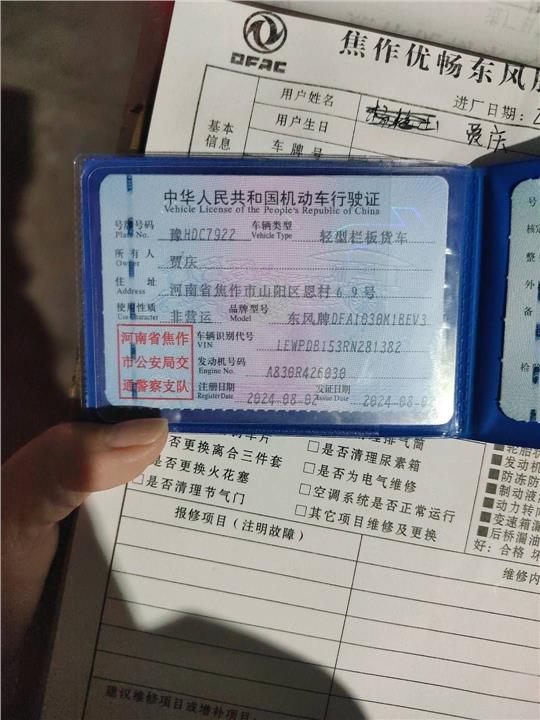 DFAC
焦作优畅东风
用户姓名
进厂日期：2
基本信息
用户生日
贾庆
车牌号
中华人民共和国机动车行驶证
Vehicle License of the People's Republic of China
号牌号码 豫HDC7922 车辆类型 轻型栏板货车
Plate No. Vehicle Type
所有人 贾庆
Owner
住址 河南省焦作市山阳区恩村69号
Address
使用性质 非营运 品牌型号 东风牌DFA1030M1BEV3
Use Character Model
河南省焦作
市公安局交
通警察支队
车辆识别代号 LEWPDB153RN281382
VIN
发动机号码 A830R426030
Engine No.
注册日期 2024-08-02 发证日期 2024-08-02
Register Date Issue Date
号
核定
整
外
备
检验
车片
□是否清理排气筒
□是否更换离合三件套
□是否清理尿素箱
□是否更换火花塞
□是否为电气维修
□是否清理节气门
□空调系统是否正常运行
□其它项目维修及更换
轮胎状
■发动机
■防冻防
■制动液
■动力转向
■变速箱漏
■后桥漏油
好：合格 坏
报修项目（注明故障）
维修内
建议维修项目或增补项目